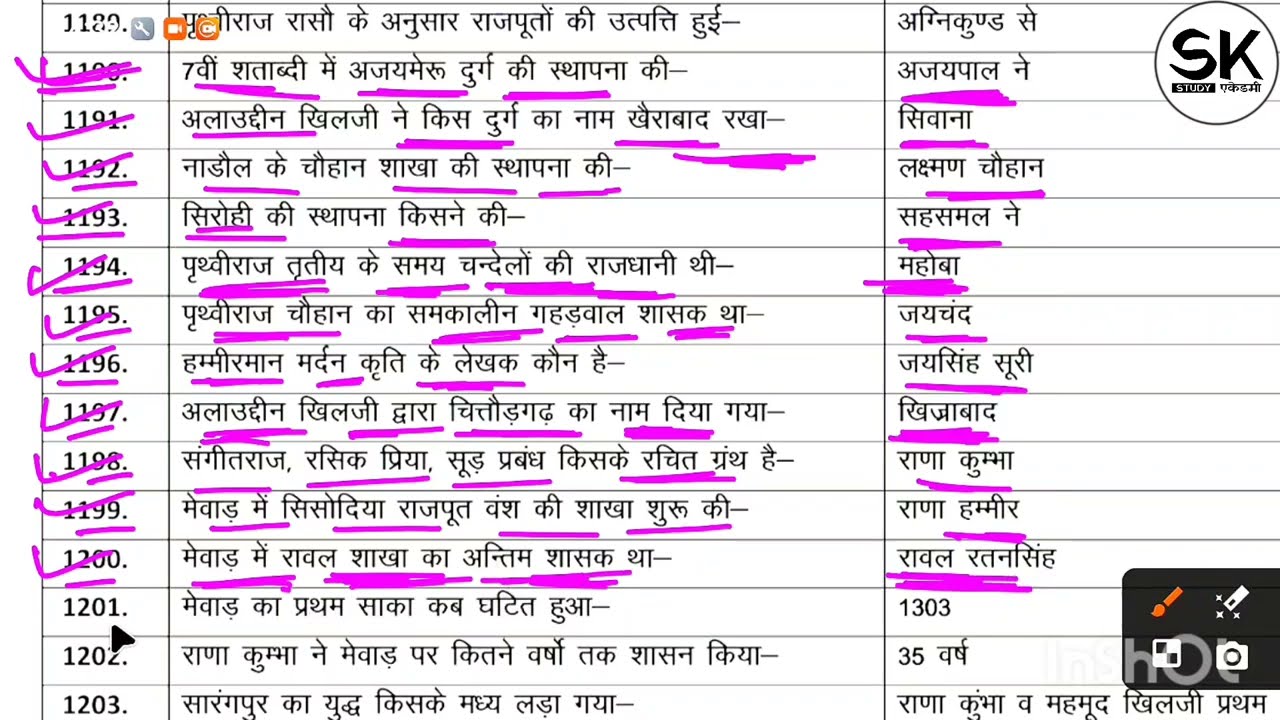 1189. पृथ्वीराज रासौ के अनुसार राजपूतों की उत्पत्ति हुई– अग्निकुण्ड से
1190. 7वीं शताब्दी में अजयमेरू दुर्ग की स्थापना की– अजयपाल ने
1191. अलाउद्दीन खिलजी ने किस दुर्ग का नाम खैराबाद रखा– सिवाना
1192. नाडौल के चौहान शाखा की स्थापना की– लक्ष्मण चौहान
1193. सिरोही की स्थापना किसने की– सहसमल ने
1194. पृथ्वीराज तृतीय के समय चन्देलों की राजधानी थी– महोबा
1195. पृथ्वीराज चौहान का समकालीन गहड़वाल शासक था– जयचंद
1196. हम्मीरमान मर्दन कृति के लेखक कौन है– जयसिंह सूरी
1197. अलाउद्दीन खिलजी द्वारा चित्तौड़गढ़ का नाम दिया गया– खिज्राबाद
1198. संगीतराज, रसिक प्रिया, सूड़ प्रबंध किसके रचित ग्रंथ है– राणा कुम्भा
1199. मेवाड़ में सिसोदिया राजपूत वंश की शाखा शुरू की– राणा हम्मीर
1200. मेवाड़ में रावल शाखा का अन्तिम शासक था– रावल रतनसिंह
1201. मेवाड़ का प्रथम साका कब घटित हुआ– 1303
1202. राणा कुम्भा ने मेवाड़ पर कितने वर्षो तक शासन किया– 35 वर्ष
1203. सारंगपुर का युद्ध किसके मध्य लड़ा गया– राणा कुंभा व महमूद खिलजी प्रथम
SK
STUDY एकेडमी
InShOt